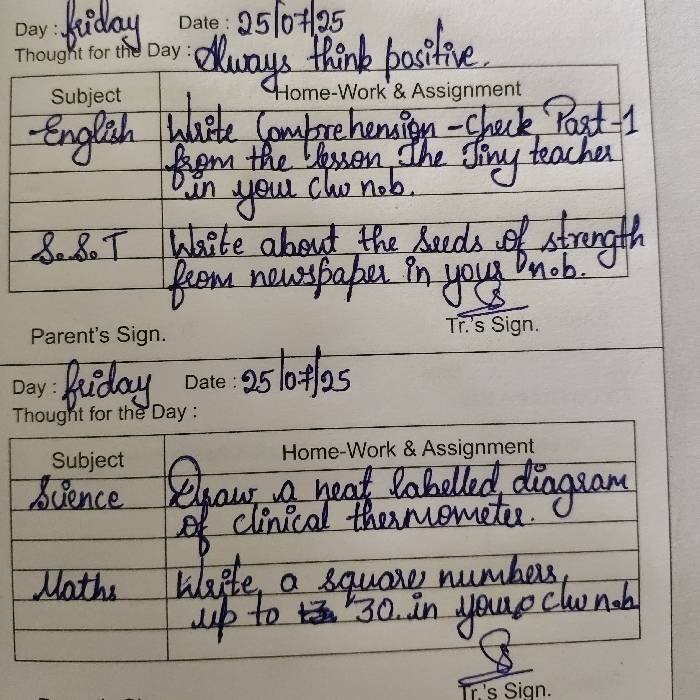 Day : friday Date : 25/07/25
Thought for the Day : Always think positive.
Subject Home-Work & Assignment
English Write Comprehension - Check Part-1
from the lesson The Tiny teacher
in your cw n.b.
S.S.T Write about the seeds of strength
from newspaper in your n.b.
Parent's Sign. Tr.'s Sign.
Day : friday Date : 25/07/25
Thought for the Day :
Subject Home-Work & Assignment
Science Draw a neat labelled diagram
of clinical thermometer.
Maths Write a square numbers
up to 30 in your cw n.b
Tr.'s Sign.